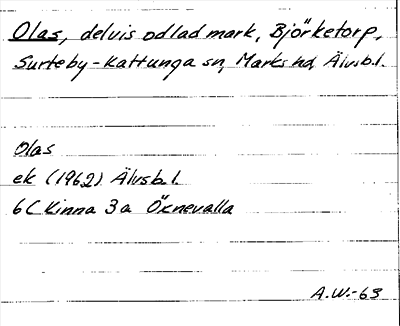 Olas, delvis odlad mark, Björketorp,
Surteby-Kattunga sn, Marks hd, Älvsb.l.
Olas
ek (1962) Älvsb.l.
6C Kinna 3a Öxnevalla
A.W.-63